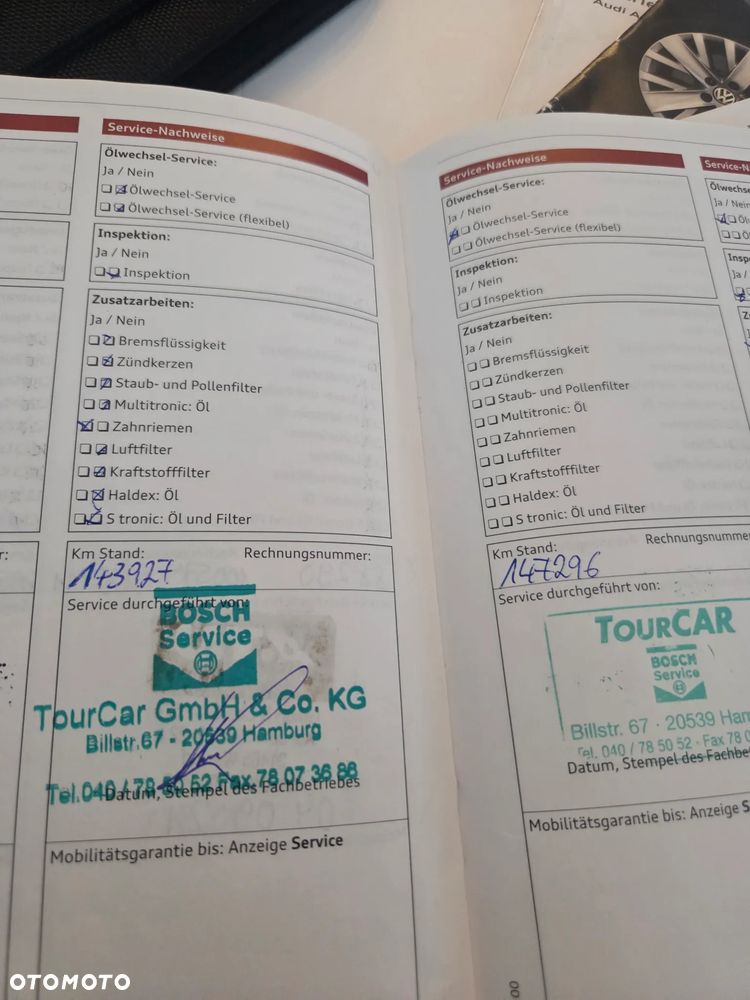 Audi A
Service-Nachweise
Ölwechsel-Service:
Ja / Nein
Ölwechsel-Service
Ölwechsel-Service (flexibel)
Inspektion:
Ja / Nein
Inspektion
Zusatzarbeiten:
Ja / Nein
Bremsflüssigkeit
Zündkerzen
Staub- und Pollenfilter
Multitronic: Öl
Zahnriemen
Luftfilter
Kraftstofffilter
Haldex: Öl
S tronic: Öl und Filter
Km Stand: Rechnungsnummer:
143927
Service durchgeführt von:
BOSCH
Service
TourCar GmbH & Co. KG
Billstr.67 - 20539 Hamburg
Tel.040 / 78 50 52 Fax 78 07 36 86
Datum, Stempel des Fachbetriebes
Mobilitätsgarantie bis: Anzeige Service
Service-Nachweise
Ölwechsel-Service:
Ja / Nein
Ölwechsel-Service
Ölwechsel-Service (flexibel)
Inspektion:
Ja / Nein
Inspektion
Zusatzarbeiten:
Ja / Nein
Bremsflüssigkeit
Zündkerzen
Staub- und Pollenfilter
Multitronic: Öl
Zahnriemen
Luftfilter
Kraftstofffilter
Haldex: Öl
S tronic: Öl und Filter
Km Stand: Rechnungsnummer
147296
Service durchgeführt von:
TOURCAR
BOSCH
Service
Billstr. 67 · 20539 Ham
Tel. 040 / 78 50 52 · Fax 78 0
Datum, Stempel des Fachbe
Mobilitätsgarantie bis: Anzeige S
Service-N
Ölwechs
Ja / Nein
Öl
Öl
Insp
Ja /
OTOMOTO